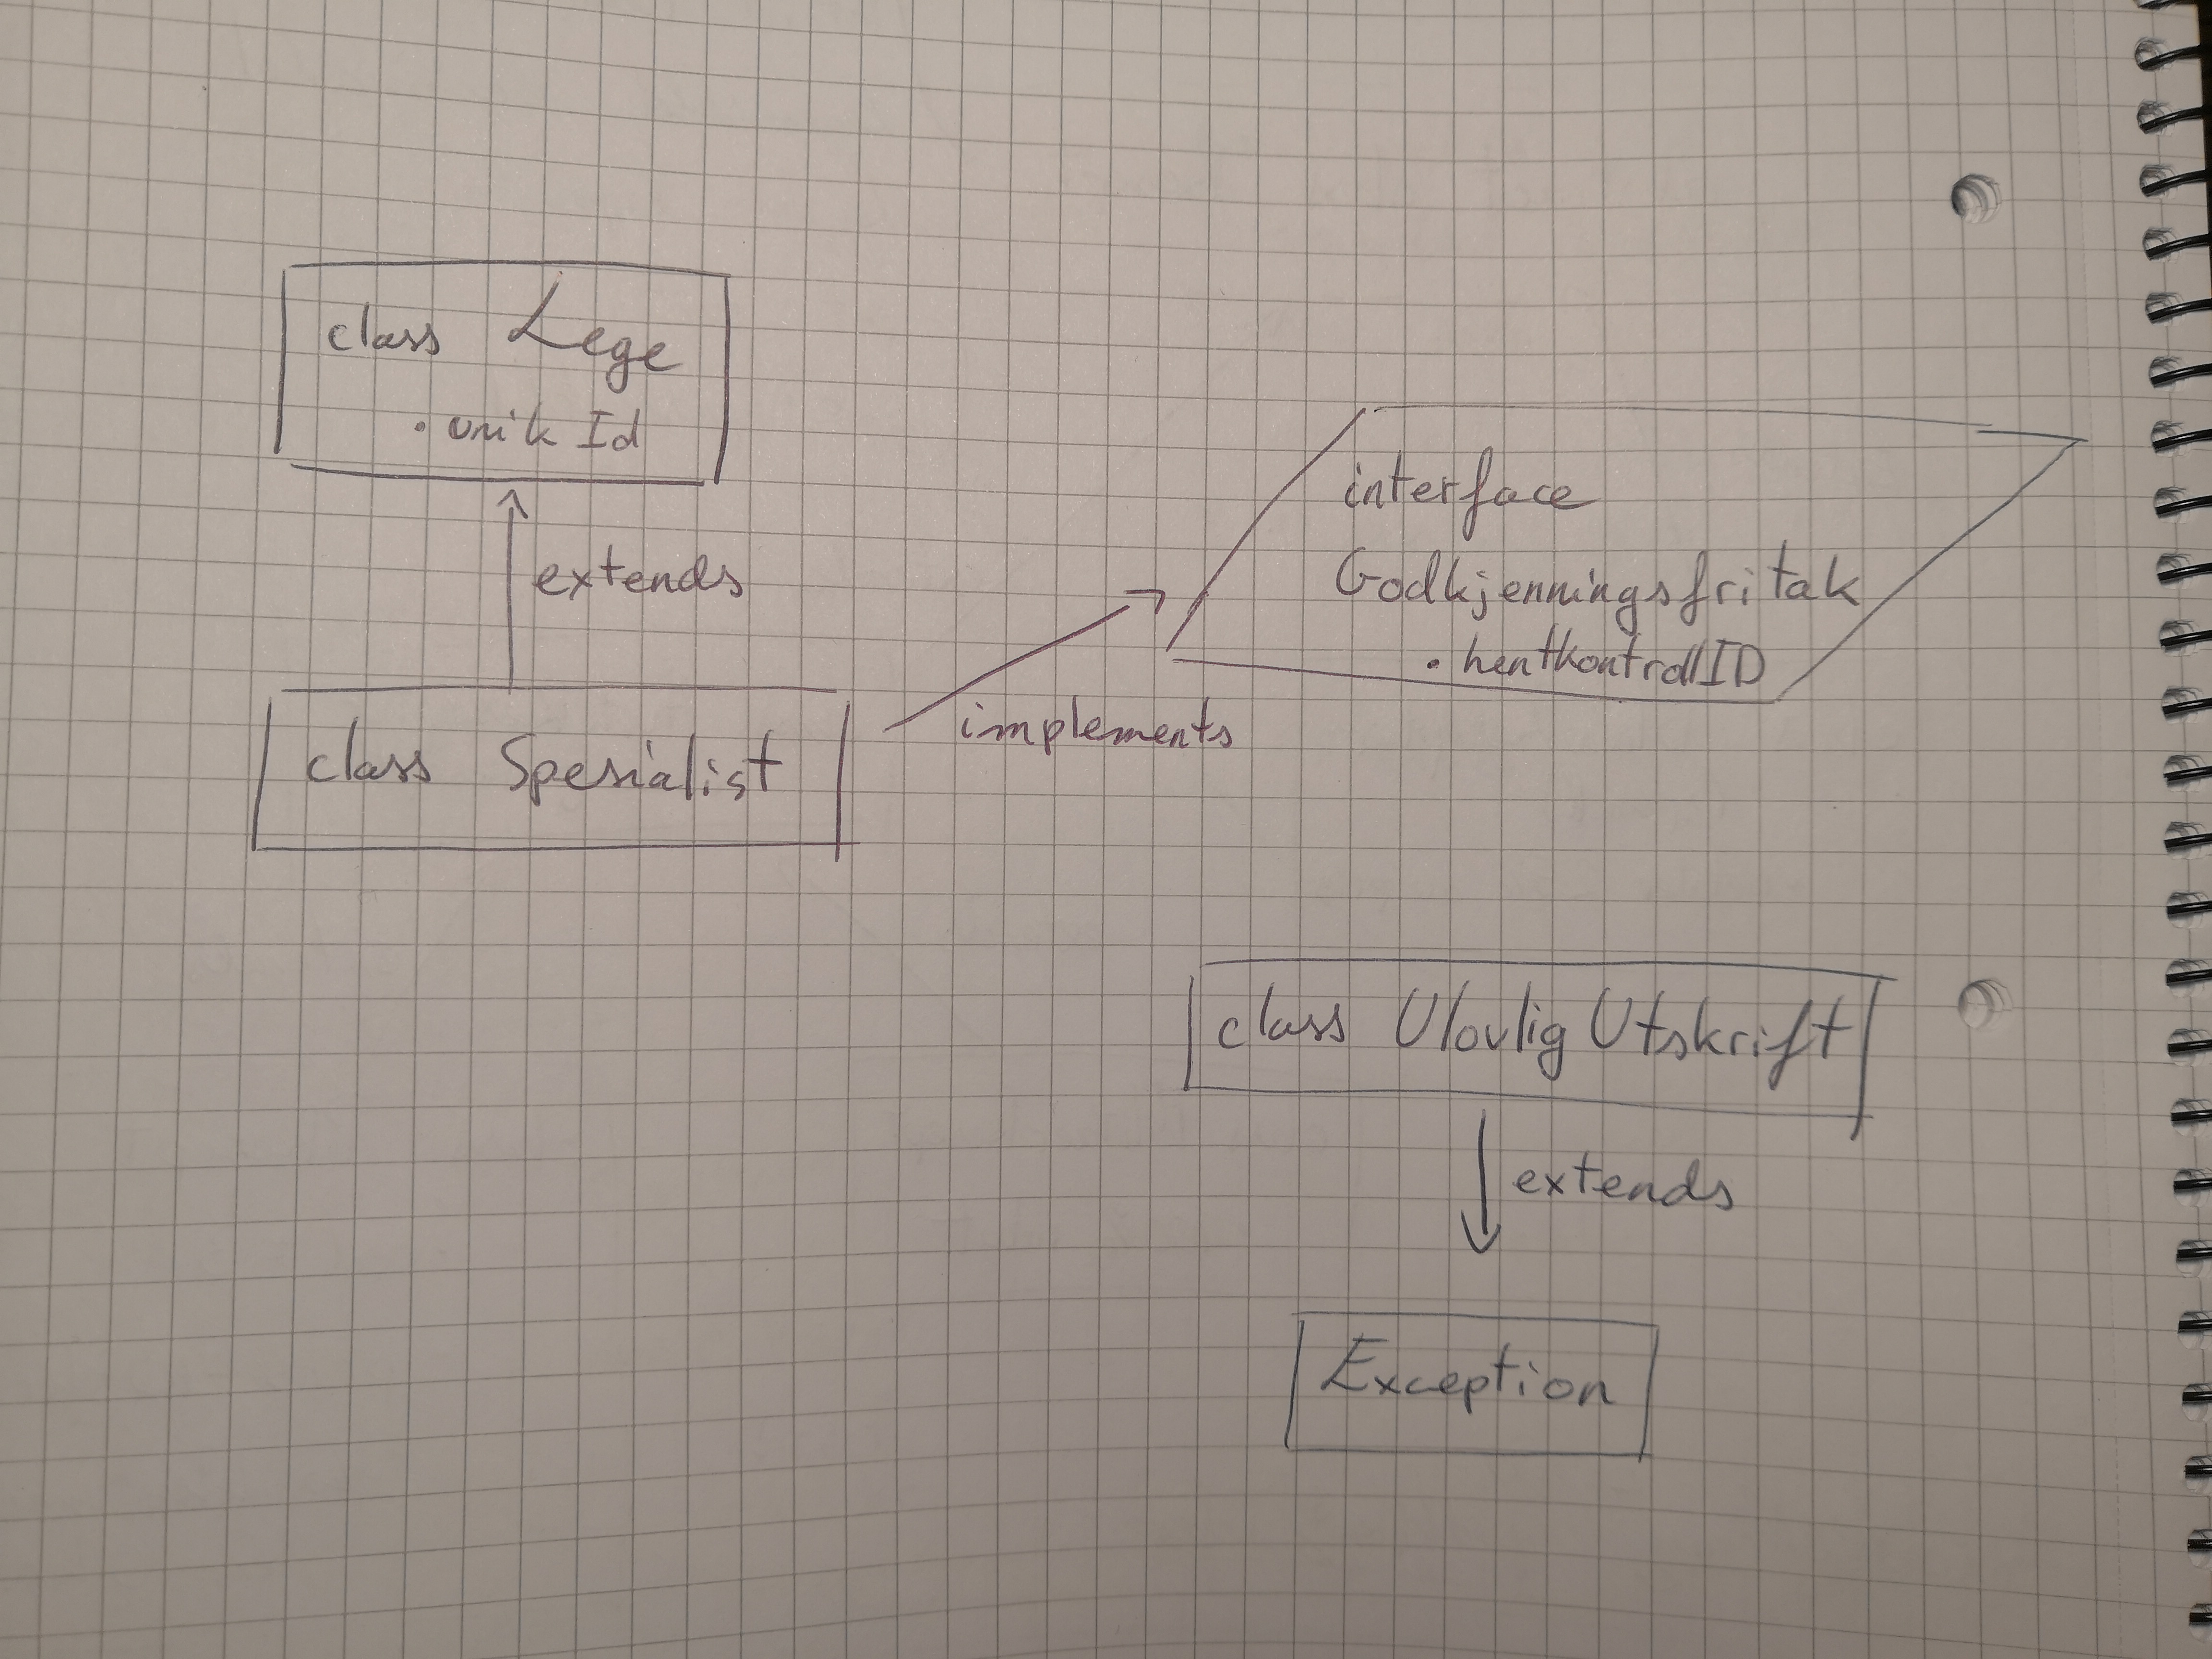 class Lege
• unik Id
extends
class Spesialist
implements
interface
Godkjenningsfritak
• hentkontrollID
class Ulovlig Utskrift
extends
Exception